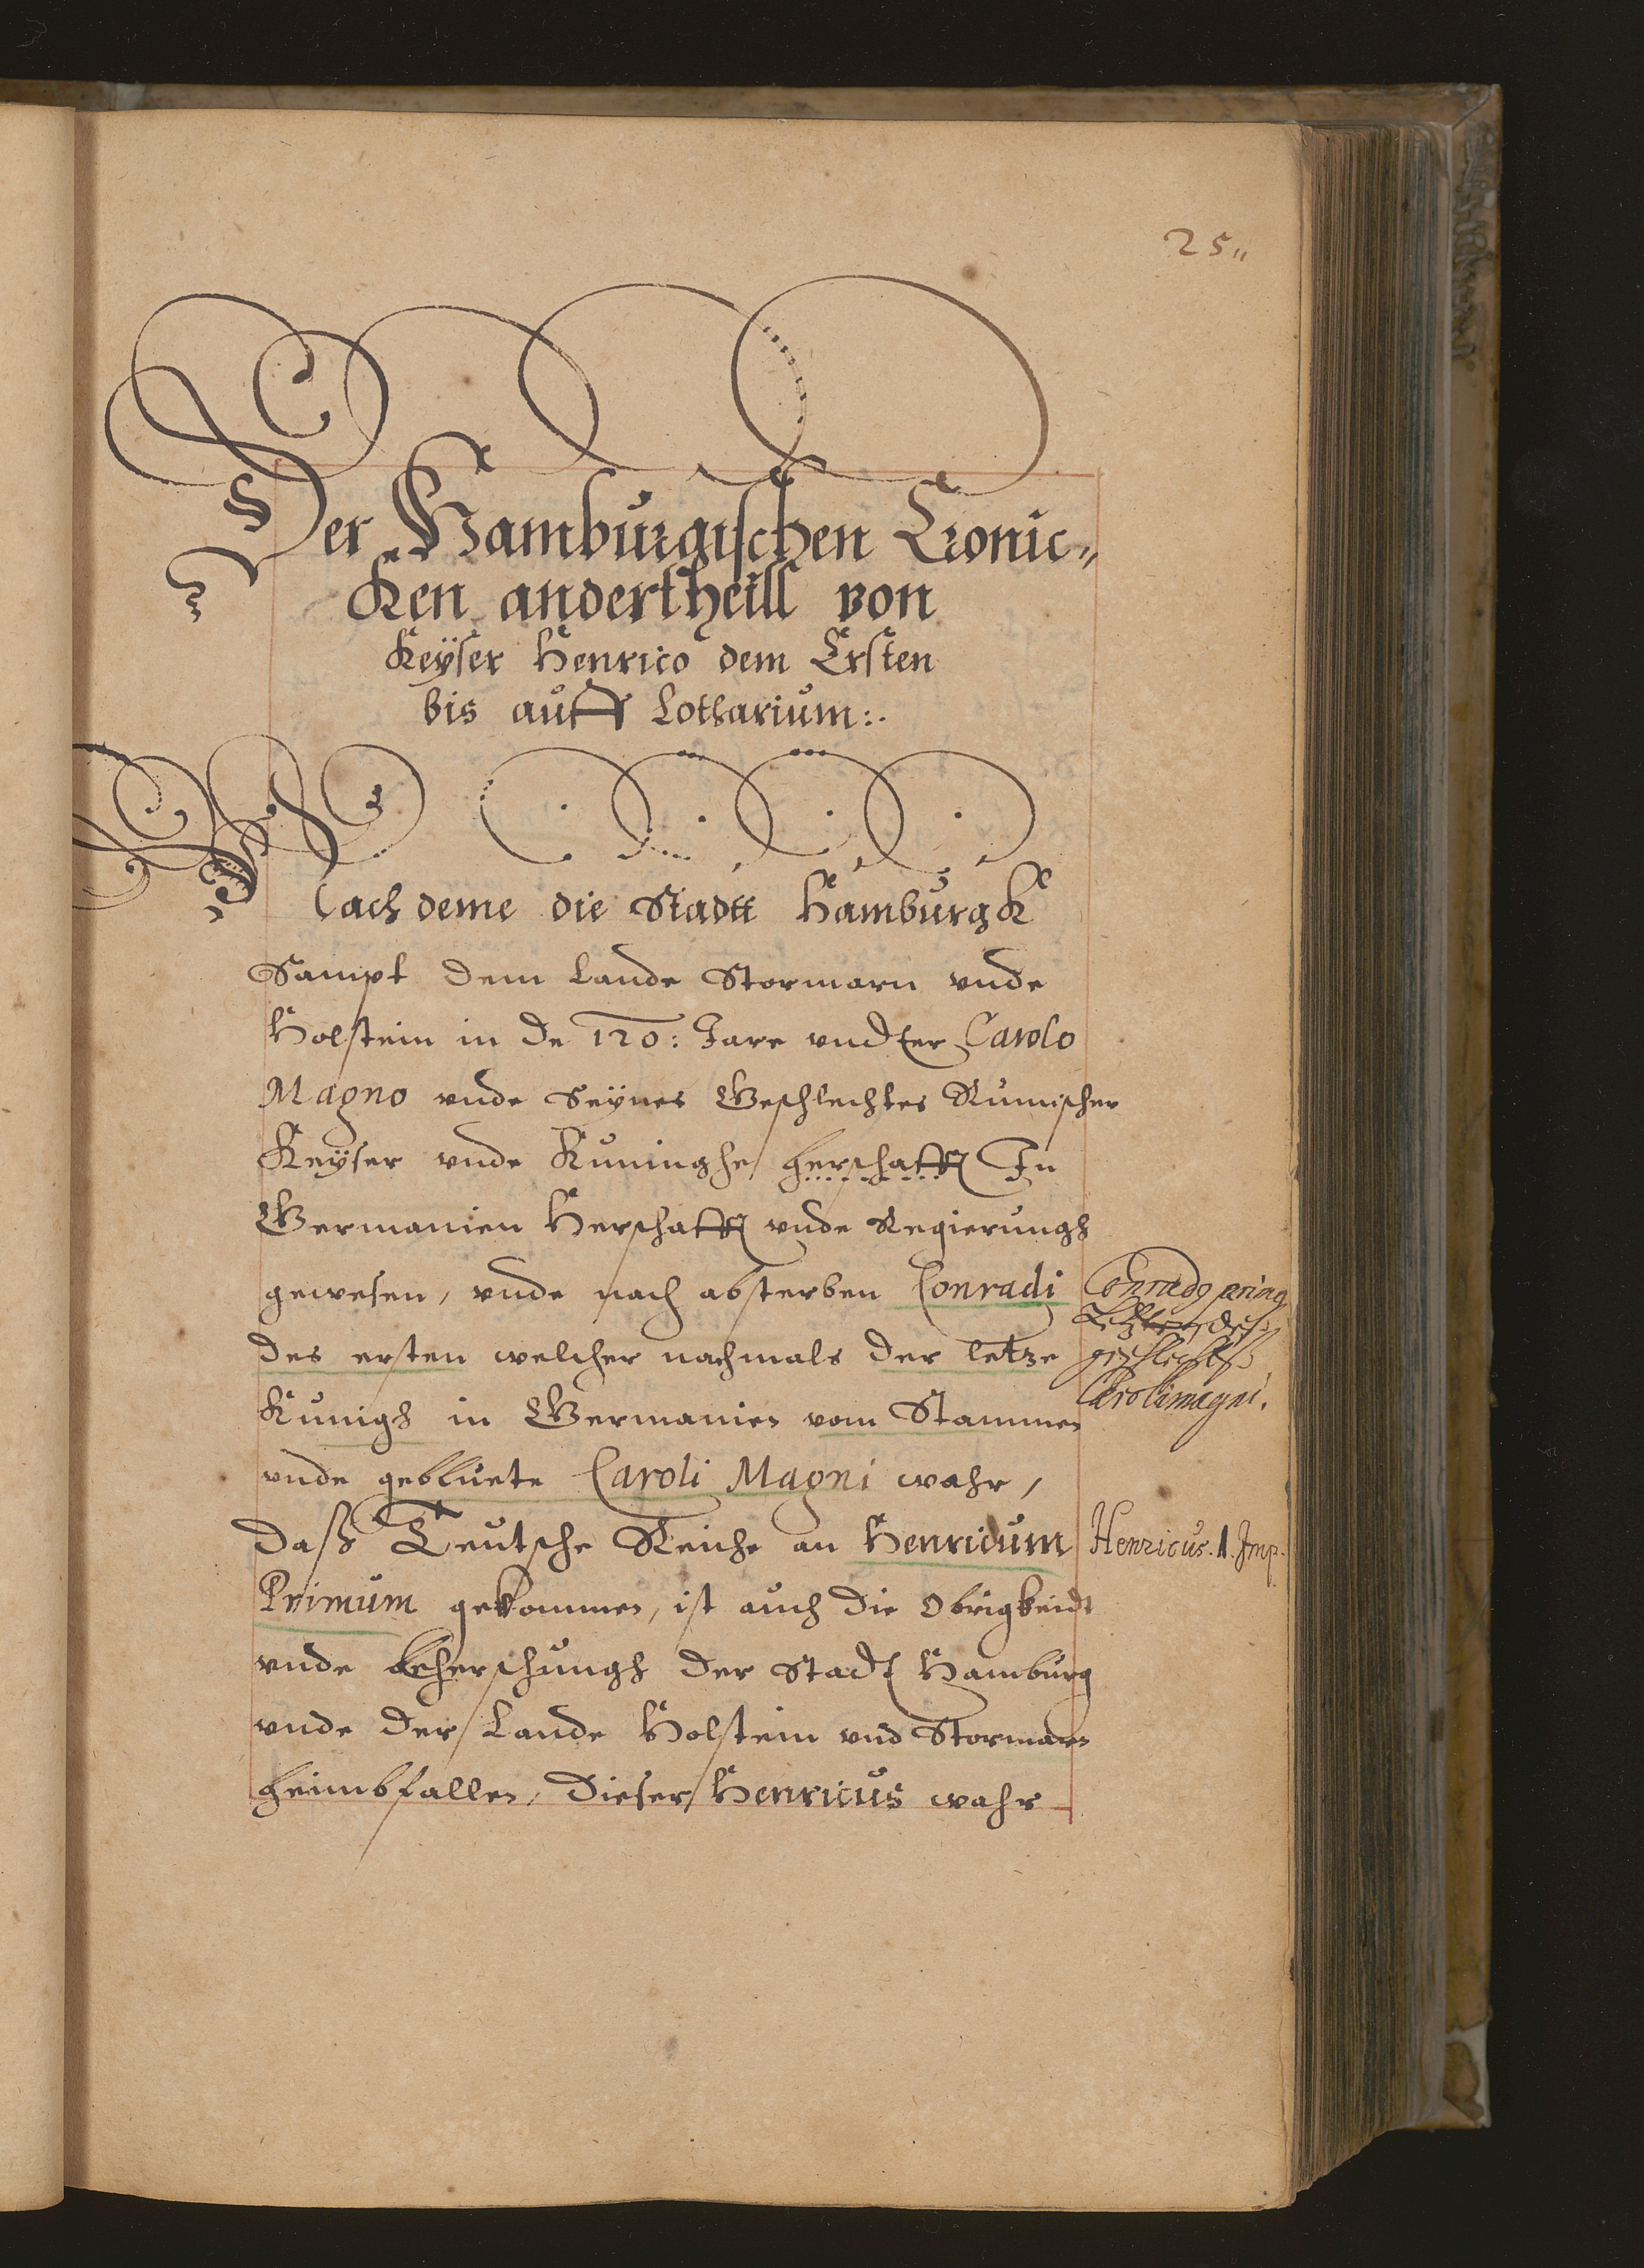 25„
Der Hamburgischen Cronic„
ken andertheill von
Keÿser Henrico dem Ersten
bis auff Lotharium:.
Nach deme die Stadtt Hamburgk
Sampt dem Lande Stormarn vnde
Holstein in de 120: Jare vndter Carolo
Magno vnde Seÿnes Geschlechtes Rumischer
Keÿser vnde Kuninghe herschafft In
Germanien Herschafft vnde Regierungh
gewesen, vnde nach absterben Conradi
des ersten welcher nachmals der letze
Kunigh in Germanien vom Stammen
vnde gebluete Caroli Magni wahr,
daß Teutsche Reiche an Henricum
Primum gekommen, ist auch die Obrigkeidt
vnde beherschungh der Stadt Hamburg
vnde der Lande Holstein vnd Stormarn
heimbfallen, Dieser Henricus wahr
Conradg
Letzter des
geschlechtß
Caroli magni.
Henricus. 1. Imp.